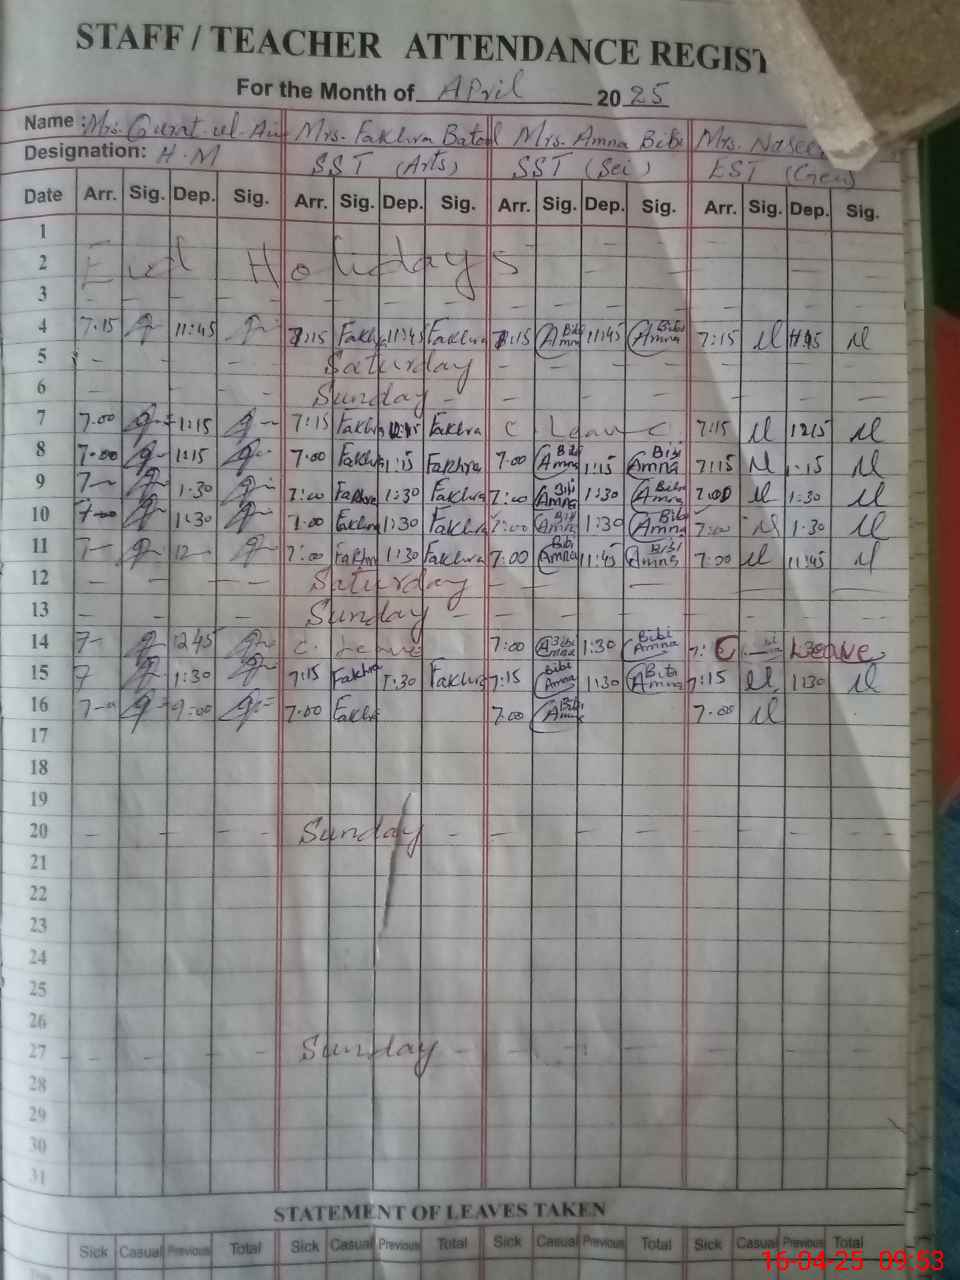 STAFF / TEACHER ATTENDANCE REGIST
For the Month of April 2025
Name : Mrs. Qurat-ul-Ain Mrs. Fakhra Batool Mrs. Amna Bibi Mrs. Naseem
Designation: H.M SST (Arts) SST (Sci) EST (Gen)
Date Arr. Sig. Dep. Sig. Arr. Sig. Dep. Sig. Arr. Sig. Dep. Sig. Arr. Sig. Dep. Sig.
1
2 Eid Holidays
3
4 7.15 11:45 7:15 Fakhra 11:45 Fakhra 7:15 Amna Bibi 11:45 Amna Bibi 7:15 11:45
5 Saturday
6 Sunday
7 7.00 1:15 7:15 Fakhra Fakhra C. Leave 7:15 12:15
8 7.00 1:15 7.00 Fakhra 1:15 Fakhra 7.00 Amna Bibi 1:15 Amna Bibi 7:15 1:15
9 7- 1.30 7:00 Fakhra 1:30 Fakhra 7:00 Amna Bibi 1:30 Amna Bibi 7:00 1:30
10 1:30 Fakhra 1:30 Fakhra 7:00 Amna Bibi 1:30 Amna Bibi 7:00 1:30
11 7- 12- 7:00 Fakhra 1:30 Fakhra 7:00 Amna Bibi 11:45 Amna Bibi 7:00 11:45
12 Saturday
13 Sunday
14 7- 12 45 C. Leave 7:00 Amna Bibi 1:30 Amna Bibi C Leave
15 7 1:30 7:15 Fakhra 1:30 Fakhra 7:15 Amna Bibi 1:30 Amna Bibi 7:15 1:30
16 9:00 7.00 Fakhra 7.00 Amna Bibi 7.00
17
18
19
20 Sunday
21
22
23
24
25
26
27 Sunday
28
29
30
31
STATEMENT OF LEAVES TAKEN
Sick Casual Previous Total Sick Casual Previous Total Sick Casual Previous Total Sick Casual Previous Total
16-04-25 09:53